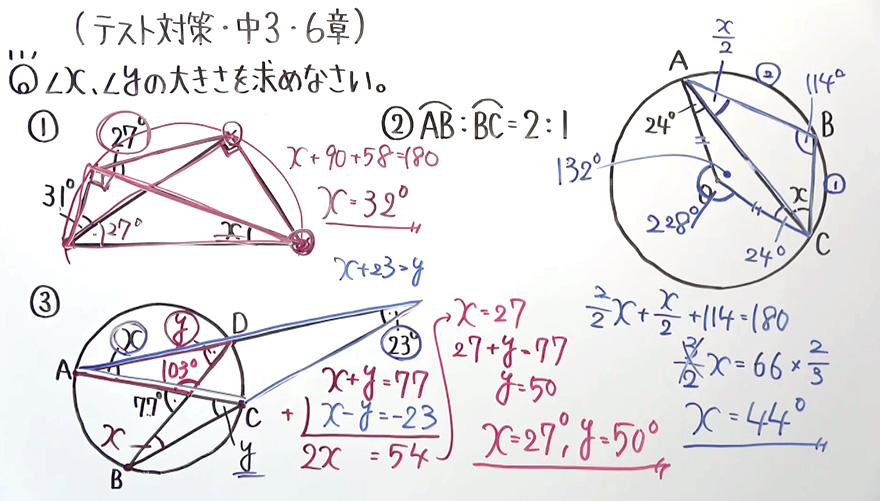 (テスト対策・中3・6章)
Q ∠x、∠yの大きさを求めなさい。
①
27°
31°
27°
x
x
x+90+58=180
x=32°
② AB:BC=2:1
A
x/2
②
114°
B
24°
132°
O
①
x
228°
24°
C
2/2x+x/2+114=180
3/2x=66×2/3
x=44°
③
x+23=y
x
y
D
A
103°
23°
77°
C
x
y
B
x+y=77
+) x-y=-23
2x =54
x=27
27+y=77
y=50
x=27°,y=50°